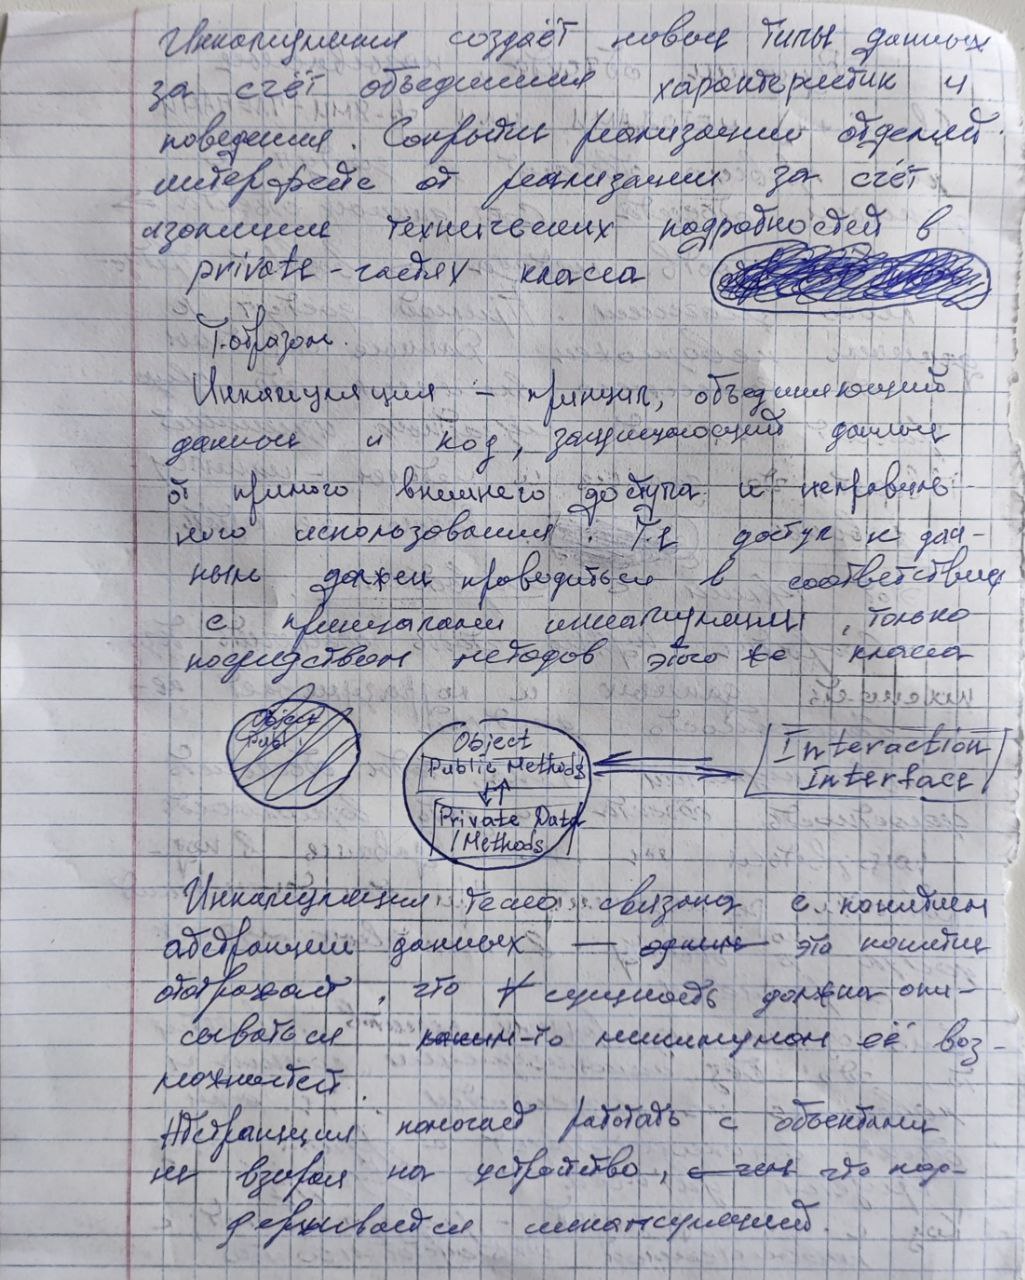 Инкапсуляция создаёт новые типы данных
за счёт объединения характеристик и
поведения. Сокрытие реализации отделяет
интерфейс от реализации за счёт
изоляции технических подробностей в
private-частях класса
Т.образом.
Инкапсуляция – принцип, объединяющий
данные и код, защищающий данные
от прямого внешнего доступа и неправиль
ного использования. Т.е доступ к дан-
ным должен проводиться в соответствии
с принципами инкапсуляции, только
посредством методов этого же класса
Object
Publ
Object
Public Methods
Interaction
Interface
Private Data
/Methods
Инкапсуляция тесно связана с понятием
абстракции данных — это понятие
отображает, что ∀ сущность должна опи-
сываться каким-то минимумом её воз-
можностей.
Абстракция помогает работать с объектами
не взирая на устройство, что под-
держивается инкапсуляцией.